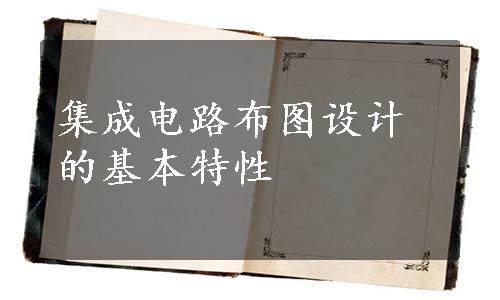 集成电路布图设计
的基本特性